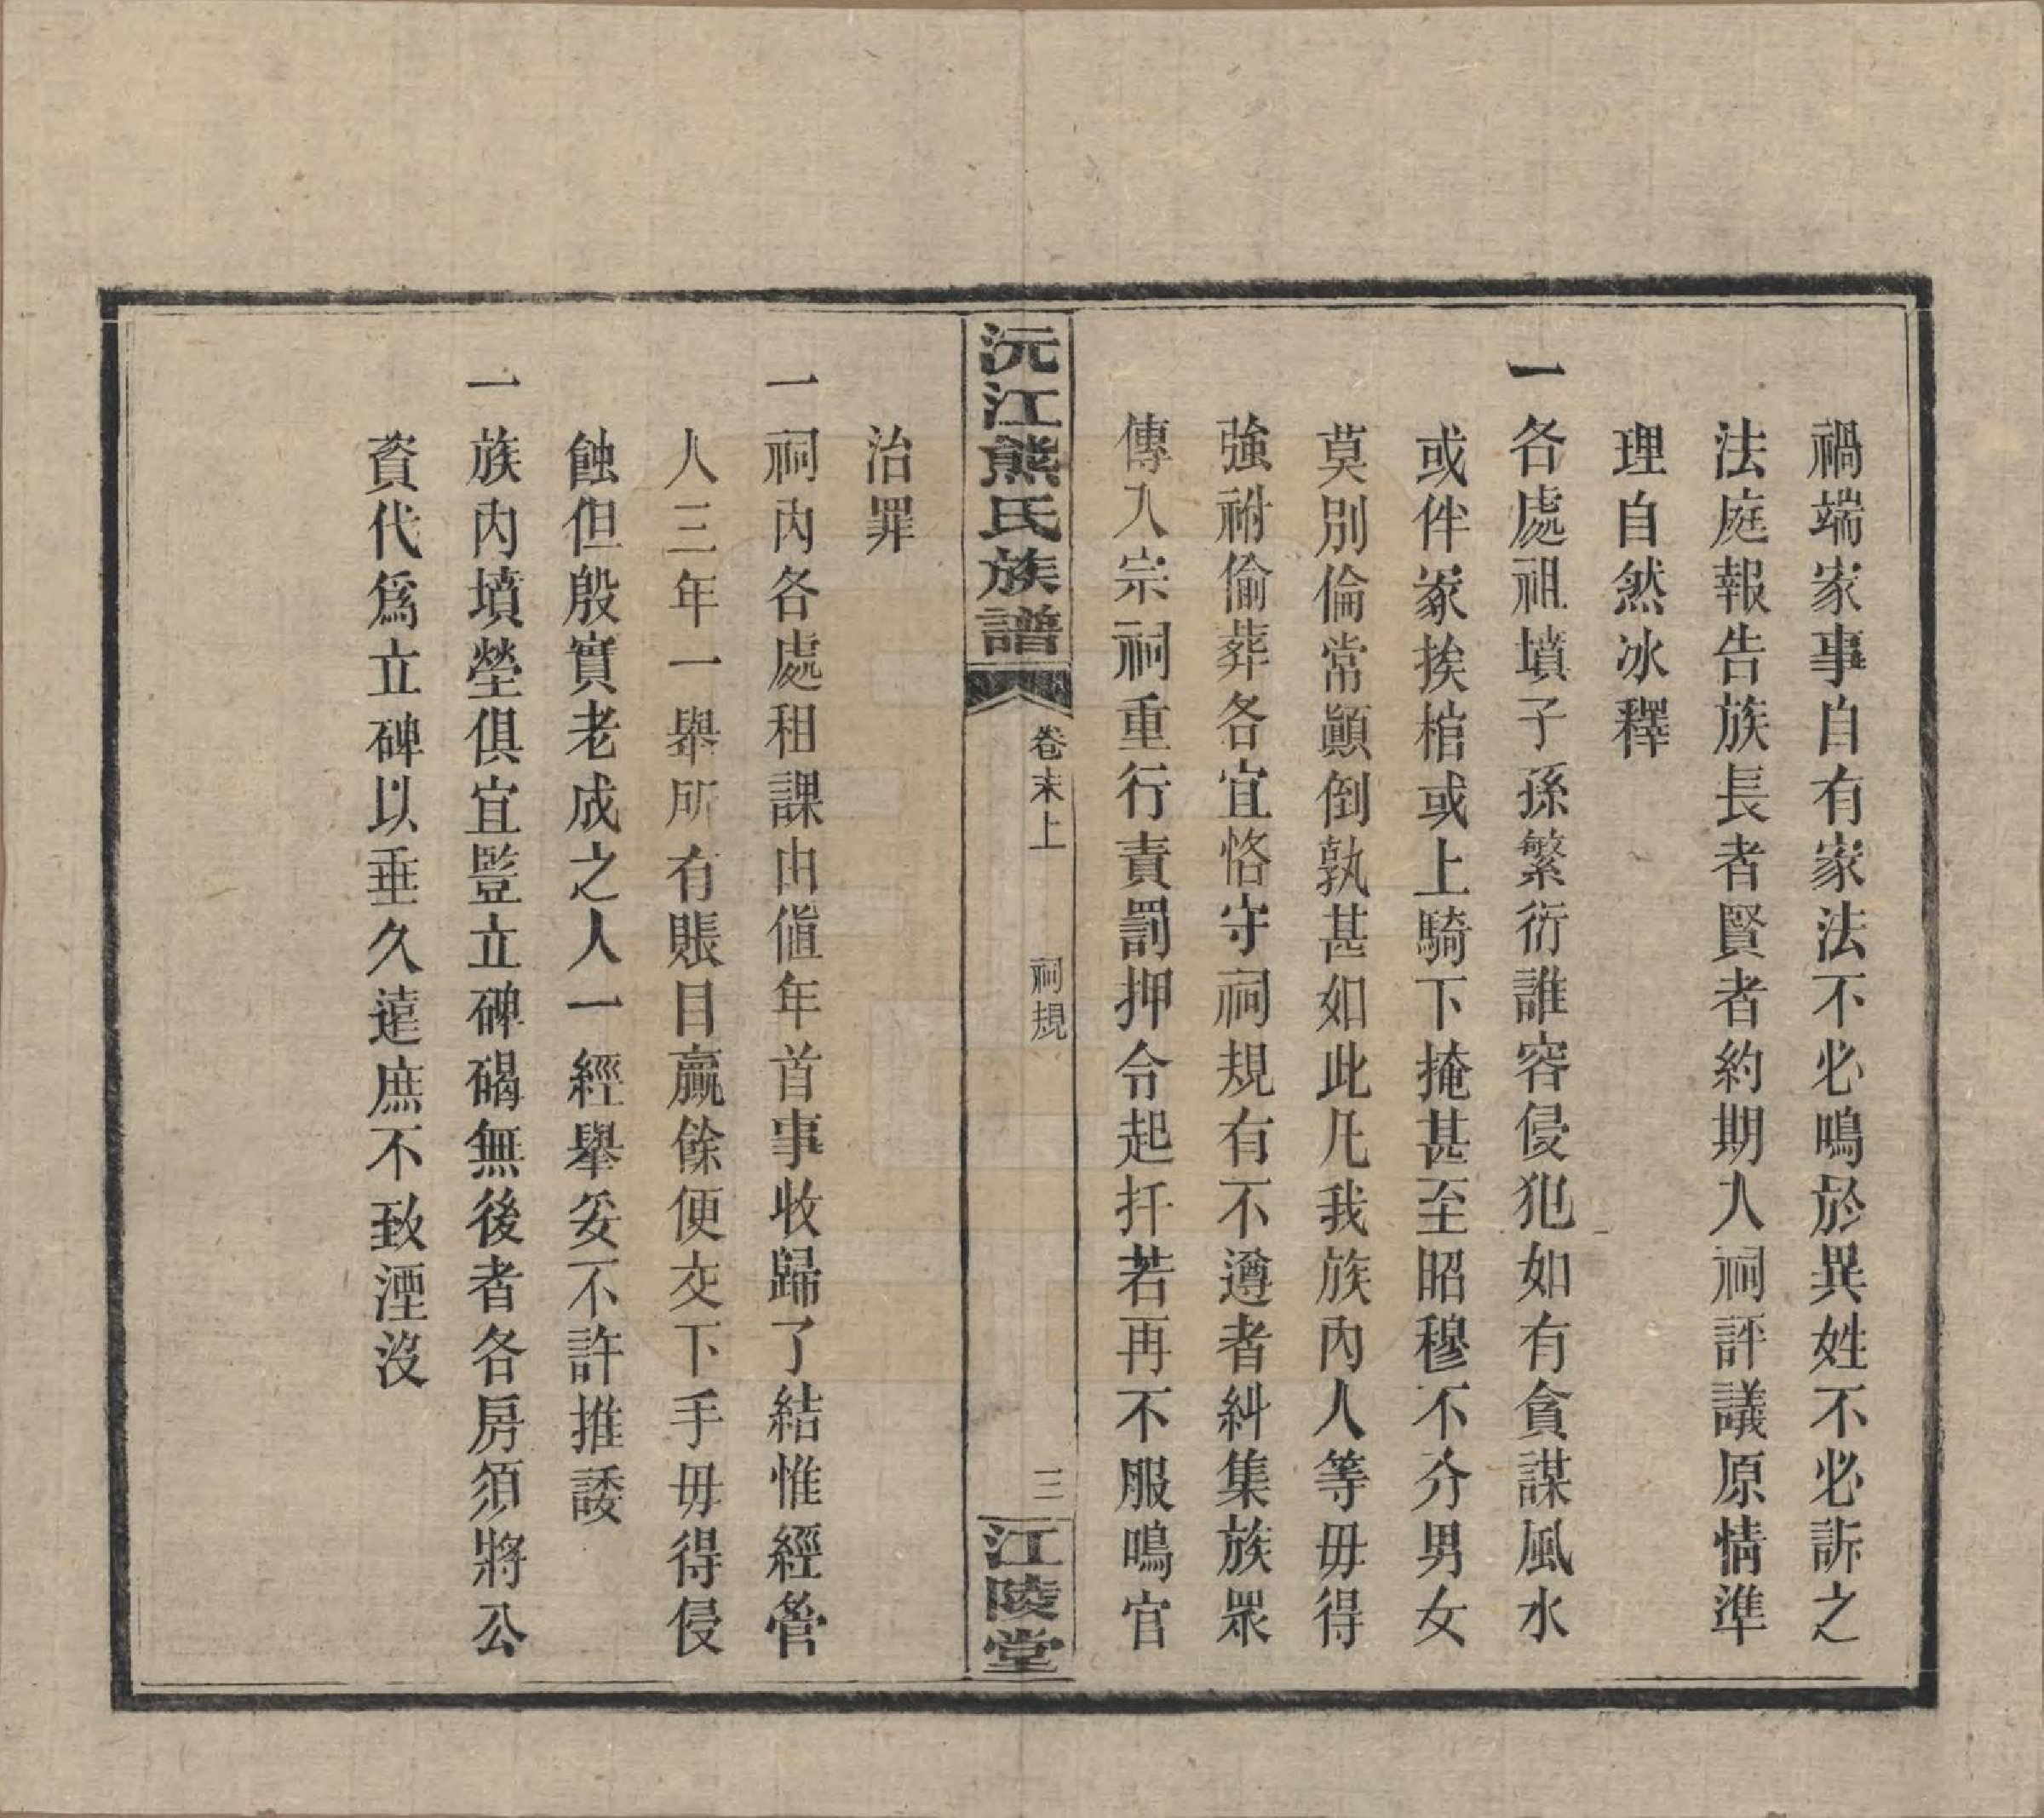 禍端家事自有家法不必鳴於異姓不必訴之
法庭報告族長者賢者約期人祠評議原情準
理自然冰釋
一各處祖墳子孫繁衍誰容侵犯如有貪謀風水
或伴冢挨棺或上騎下掩甚至昭穆不分男女
莫別倫常顚倒孰甚如此凡我族內人等毋得
強祔偷葬各宜恪守祠規有不遵者糾集族眾
傳入宗祠重行責罰押令起扦若再不服鳴官
沅江熊氏族譜
卷末上
祠規
三
江陵堂
治罪
一祠內各處租課由値年首事收歸了結惟經管
人三年一舉所有賬目贏餘便交下手毋得侵
蝕但殷實老成之人一經舉妥不許推諉
一族內墳塋俱宜豎立碑碣無後者各房須將公
資代爲立碑以垂久遠庶不致湮沒